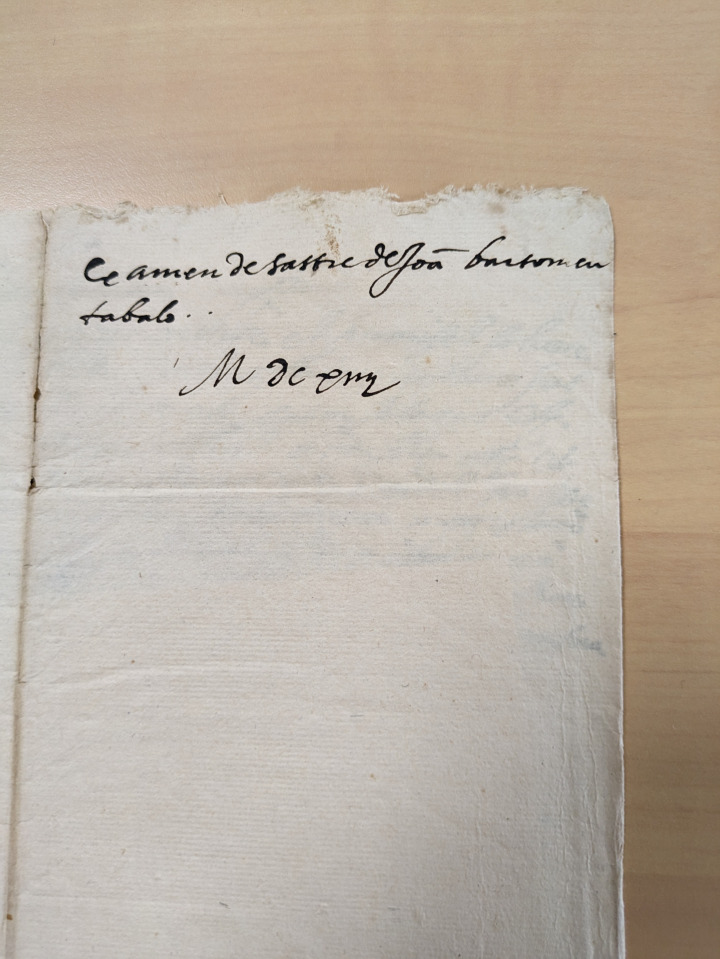 Examen de sastre de Joã bartomeu
tabalo..
M dc xiiij